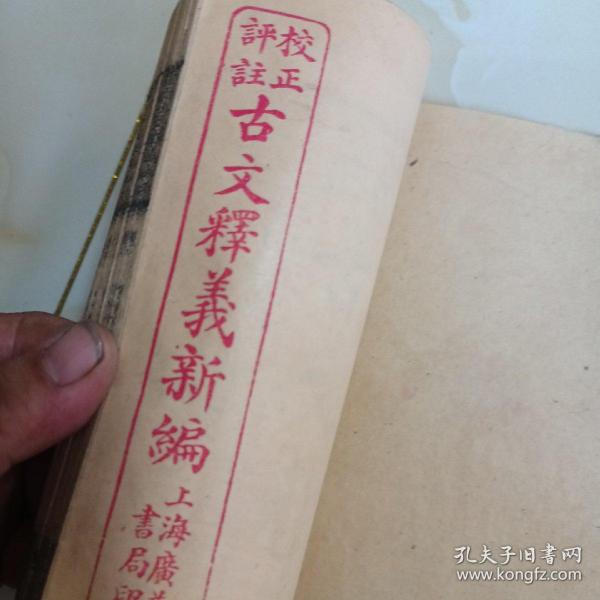 校正
評註
古文釋義新編
上海廣
書局印
孔夫子旧书网
www.kongfz.com